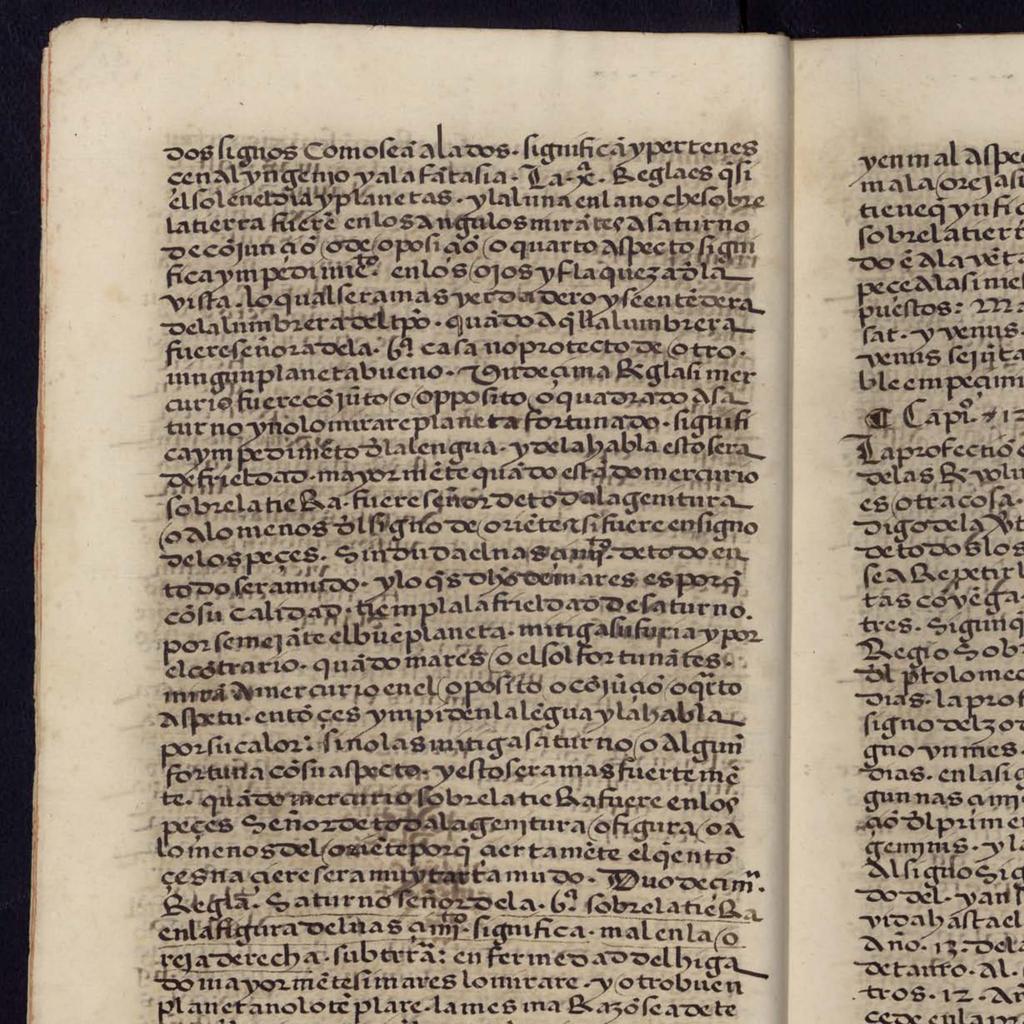 dos signos Como seã alados. significã y pertenes
çen Al yngenio y ala fãtasia. La .xᵃ. Regla es q̃ si
el sol enel dia y planetas. y la luna enla noche sobre
la tierra fuerẽ en los angulos mirãtes a saturno
de cõjunçiõ o de oposiçiõ o quarto aspecto signi
fica ympedimẽᵗᵒ. en los ojos y flaqueza dłla
vista. lo qual sera mas verdadero y se entẽdera
dela lumbrera del tp̃o. quãdo Aq̃lla lumbrera
fuere señora dela .6ᵃ. casa no protecto de otro.
ningun planeta bueno. Vndeçima Regla si mer
curio fuere cõjũto o opposito o quadrado A sa
turno y no lo mirare planeta fortunado. signifi
ca ympedimẽto dłla lengua. y dela habla esto sera
de frieldad. mayormẽte quãdo estãdo mercurio
sobre la tieRa. fuere señor de toda la genitura
o alo menos dłl signo de oriẽte si fuere en signo
delos peçes. Sin duda el nasçimiᵒ. de todo en
todo sera mudo. y lo q̃
cõ su Calidad. tiempla la frieldad de saturno.
por semejãte el buẽ planeta. mitiga su furia y por
el cõtrario. quãdo mares o el sol fortunãtes.
mirã A mercurio en el oposito o cõjũçiõ o qᵃrto
Aspetu. entõçes ympidẽ la lẽgua y la habla
por su calor: si no las mitiga saturno o Algun
fortuna cõ su aspecto. y esto sera mas fuertemẽ
te. quãdo mercurio sobre la tieRa fuere en los
peçes Señor de toda la genitura o figura o a
lo menos del oriẽte porq̃ çiertamẽte el q̃ entõ
çes naçiere sera muy tartamudo. Duodeçimᵃ.
Reglã. Saturno señor dela .6ᵃ. sobre la tiẽRa
en la figura del nasçimiᵒ. significa. mal en la o
reja derecha. sub terrã: enfermedad del higa
do mayormẽte si mares lo mirare. y otro buen
planeta no lo tẽplare. la mesma Razõ sea de te
yen mal Aspec
mala oreja si
tiene q̃ ynfic
sobre la tierr
do ẽ Ala vẽta
peçe Alas mie
puestos: Ma
sat. y venus.
venus sejũta
ble empeçimi
¶ Capiᵒ. 12
La profectiõ e
delas Revolu
es otra cosa.
digo dela
de todos los
sea Repetir l
tas cõvẽga
tres. Sigun q
Regio Sobr
dłl ptolomeo
dias. la prof
signo del zod
gno vn mes.
dias. en la sig
gun nasçimi
çiõ dłl primer
geminis. y la
Al signo Sig
do del. van
vida hasta el
Año. 13. dela
de tauro. Al.
tros. 12. Añ
cede en la pr